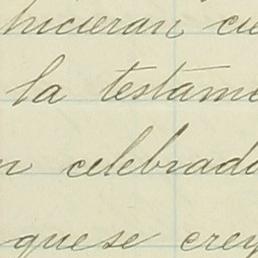 hicieran cu
la testame
n celebrada
quese crey